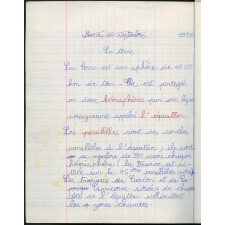 Mardi 25 septembre 1952
La terre
La terre est une sphère de 40 000
km de tour. Elle est partagée
en deux hémisphères par une ligne
imaginaire appelée l'équateur.
Les parallèles sont des cercles
parallèles à l'équateur; ils sont
au nombre de 90 dans chaque
hémisphère (la France est si-
tuée sur le 45ème parallèle nord).
Les tropiques de Cancer et du
Capricorne situés de chaque
côté de l'équateur délimitent
les zones chaudes.